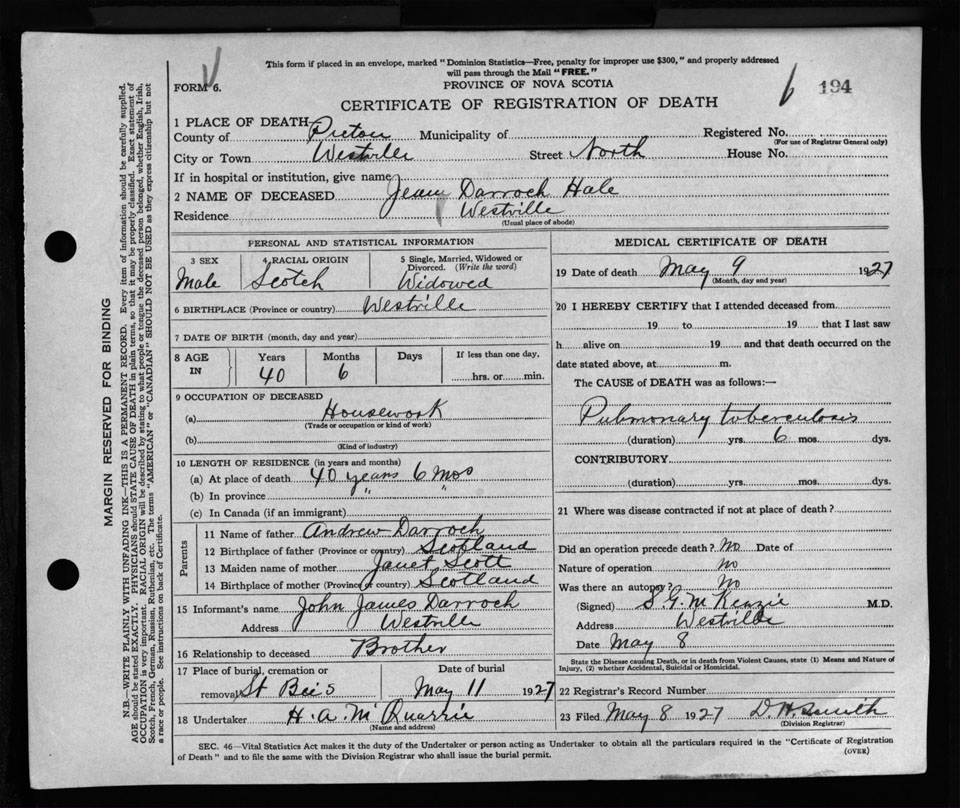 This form if placed in an envelope, marked "Dominion Statistics—Free, penalty for improper use $300," and properly addressed
will pass through the Mail "FREE."
FORM 6.
PROVINCE OF NOVA SCOTIA
6 194
CERTIFICATE OF REGISTRATION OF DEATH
1 PLACE OF DEATH
County of Pictou Municipality of Registered No.
(For use of Registrar General only)
City or Town Westville Street North House No.
If in hospital or institution, give name
2 NAME OF DECEASED Jean Darroch Hale
Residence Westville
(Usual place of abode)
PERSONAL AND STATISTICAL INFORMATION
3 SEX 4 RACIAL ORIGIN 5 Single, Married, Widowed or
Divorced. (Write the word)
Male Scotch Widowed
6 BIRTHPLACE (Province or country) Westville
7 DATE OF BIRTH (month, day and year)
8 AGE IN Years Months Days If less than one day,
40 6 hrs. or min.
9 OCCUPATION OF DECEASED
(a) Housework
(Trade or occupation or kind of work)
(b)
(Kind of industry)
10 LENGTH OF RESIDENCE (in years and months)
(a) At place of death 40 years 6 mos
(b) In province " "
(c) In Canada (if an immigrant)
Parents
11 Name of father Andrew Darroch
12 Birthplace of father (Province or country) Scotland
13 Maiden name of mother Janet Scott
14 Birthplace of mother (Province or country) Scotland
15 Informant's name John James Darroch
Address Westville
16 Relationship to deceased Brother
17 Place of burial, cremation or Date of burial
removal St Bee's May 11 1927
18 Undertaker H. A. McQuarrie
(Name and address)
MEDICAL CERTIFICATE OF DEATH
19 Date of death May 9 1927
(Month, day and year)
20 I HEREBY CERTIFY that I attended deceased from
19 to 19 that I last saw
h alive on 19 and that death occurred on the
date stated above, at m.
The CAUSE of DEATH was as follows:—
Pulmonary tuberculosis
(duration) yrs. 6 mos. dys.
CONTRIBUTORY
(duration) yrs. mos. dys.
21 Where was disease contracted if not at place of death?
Did an operation precede death? No Date of
Nature of operation No
Was there an autopsy? No
(Signed) S G McKenzie M.D.
Address Westville
Date May 8
State the Disease causing Death, or in death from Violent Causes, state (1) Means and Nature of
Injury, (2) whether Accidental, Suicidal or Homicidal.
22 Registrar's Record Number
23 Filed May 8 1927 D. H. Smith
(Division Registrar)
SEC. 46—Vital Statistics Act makes it the duty of the Undertaker or person acting as Undertaker to obtain all the particulars required in the "Certificate of Registration
of Death" and to file the same with the Division Registrar who shall issue the burial permit.
(OVER)
MARGIN RESERVED FOR BINDING
N.B.—WRITE PLAINLY WITH UNFADING INK—THIS IS A PERMANENT RECORD. Every item of information should be carefully supplied.
AGE should be stated EXACTLY. PHYSICIANS should STATE CAUSE OF DEATH in plain terms, so that it may be properly classified. Exact statement of
OCCUPATION is very important. RACIAL ORIGIN will be described by stating to what people or tongue the deceased person belonged, whether English, Irish,
Scotch, French, German, Russian, Ruthenian, etc. The terms "AMERICAN" or "CANADIAN" SHOULD NOT BE USED as they express citizenship but not
a race or people. See instructions on back of Certificate.